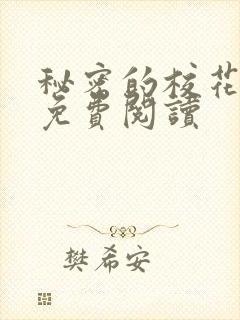 秘密的校花
免費閱讀
樊希安